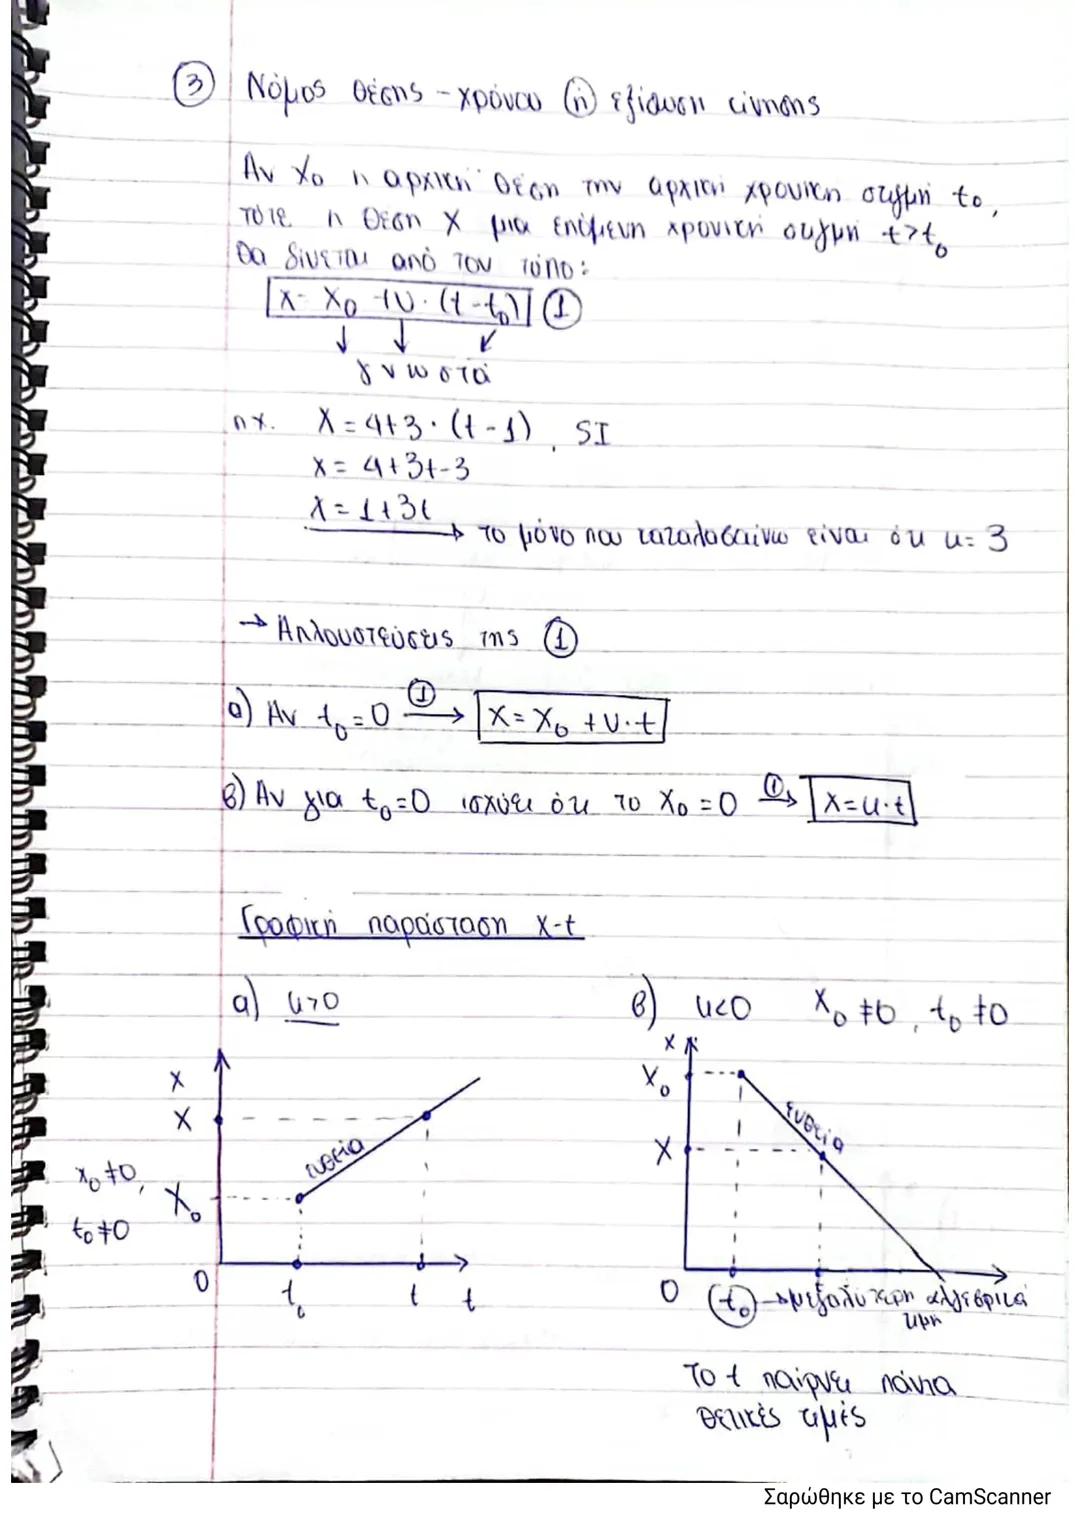 ③ Νόμος θέσης - χρόνου (ή) εξίσωση κίνησης
Αν x₀ η αρχική θέση την αρχική χρονική στιγμή t₀,
τότε η θέση x μια επόμενη χρονική στιγμή t>t₀
θα δίνεται από τον τύπο:
x = x₀ + υ · (t - t₀) ①
γνωστά
πχ. x = 4+3 · (t - 1), SI
x = 4+3t-3
x = 1+3t
→ το μόνο που καταλαβαίνω είναι ότι υ= 3
→ Απλουστεύσεις της ①
α) Αν t₀ = 0 ①→ x = x₀ + υ·t
β) Αν για t₀=0 ισχύει ότι το x₀ = 0 ①→ x=υ·t
Γραφική παράσταση x-t
α) υ>0
β) υ<0 x₀ ≠0, t₀ ≠0
x
x
x₀ ≠0,
t₀ ≠0
x₀
ευθεία
0 t₀ t t
x
x₀
x
ευθεία
0 t₀ → μεγαλύτερη αλγεβρικά
τιμή
Το t παίρνει πάντα
θετικές τιμές
Σαρώθηκε με το CamScanner